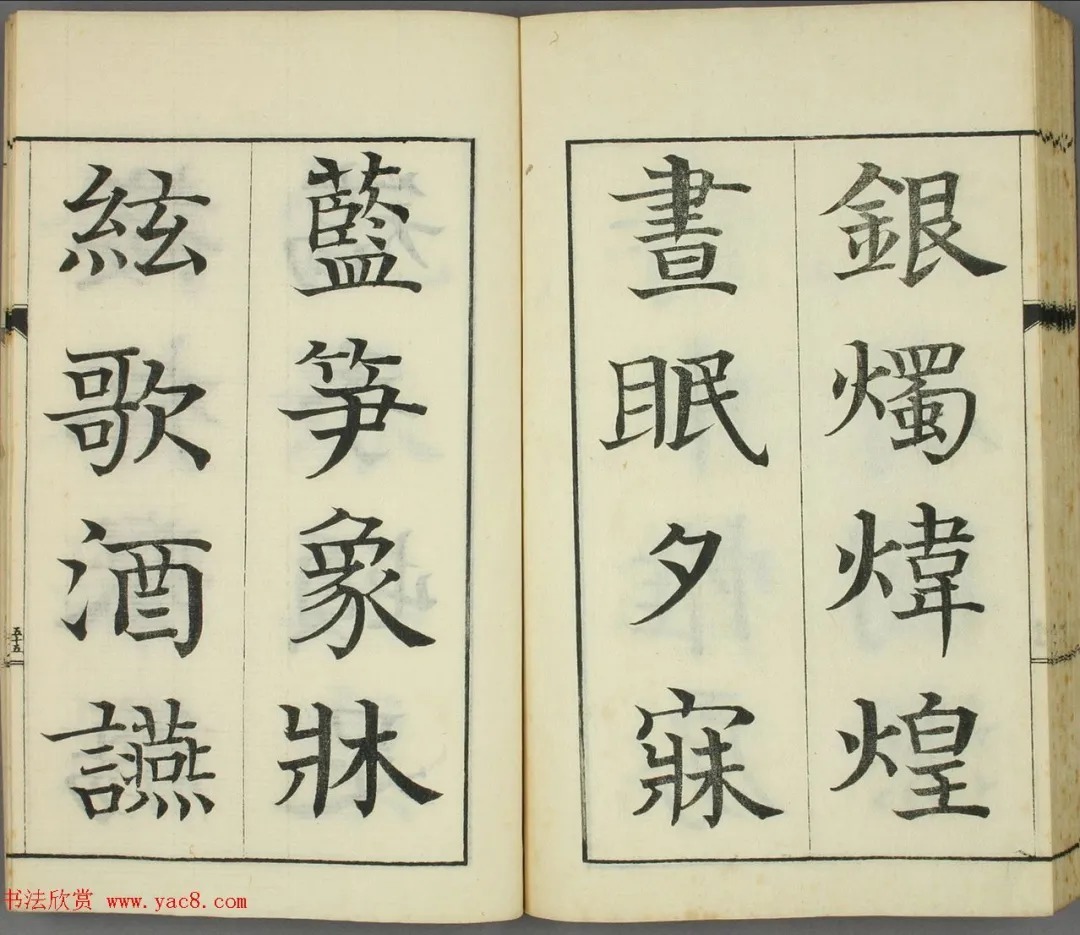 銀燭煒煌
晝眠夕寐
藍笋象牀
絃歌酒讌
五十五
书法欣赏 www.yac8.com